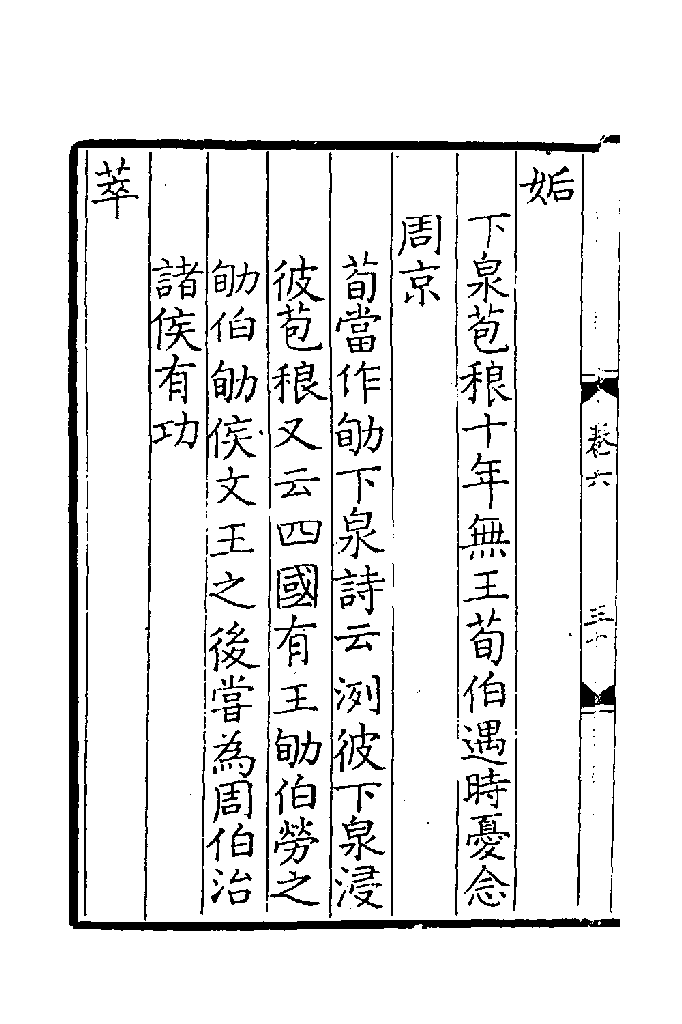 姤
下泉苞稂十年無王荀伯遇時憂念
周京
荀當作郇下泉詩云洌彼下泉浸
彼苞稂又云四國有王郇伯勞之
郇伯郇侯文王之後嘗為周伯治
諸侯有功
萃
卷六
三十